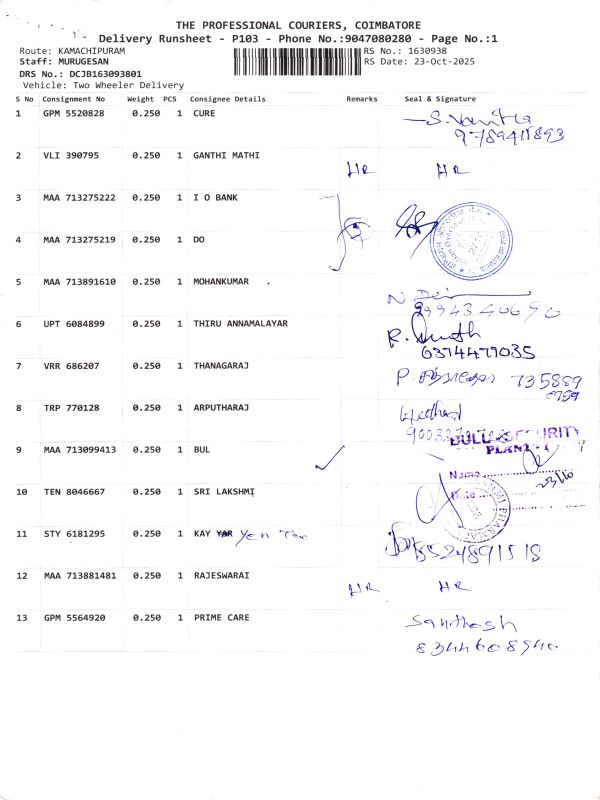 THE PROFESSIONAL COURIERS, COIMBATORE
Delivery Runsheet - P103 - Phone No.:9047080280 - Page No.:1
Route: KAMACHIPURAM RS No.: 1630938
Staff: MURUGESAN RS Date: 23-Oct-2025
DRS No.: DCJB163093801
Vehicle: Two Wheeler Delivery
S No Consignment No Weight PCS Consignee Details Remarks Seal & Signature
1 GPM 5520828 0.250 1 CURE
2 VLI 390795 0.250 1 GANTHI MATHI HR HR
3 MAA 713275222 0.250 1 I O BANK
4 MAA 713275219 0.250 1 DO
5 MAA 713891610 0.250 1 MOHANKUMAR
6 UPT 6084899 0.250 1 THIRU ANNAMALAYAR
6374479035
7 VRR 686207 0.250 1 THANAGARAJ
8 TRP 770128 0.250 1 ARPUTHARAJ
9 MAA 713099413 0.250 1 BUL
Name
Date
10 TEN 8046667 0.250 1 SRI LAKSHMI
11 STY 6181295 0.250 1 KAY Yen
8524891518
12 MAA 713881481 0.250 1 RAJESWARAI HR HR
13 GPM 5564920 0.250 1 PRIME CARE Santhosh